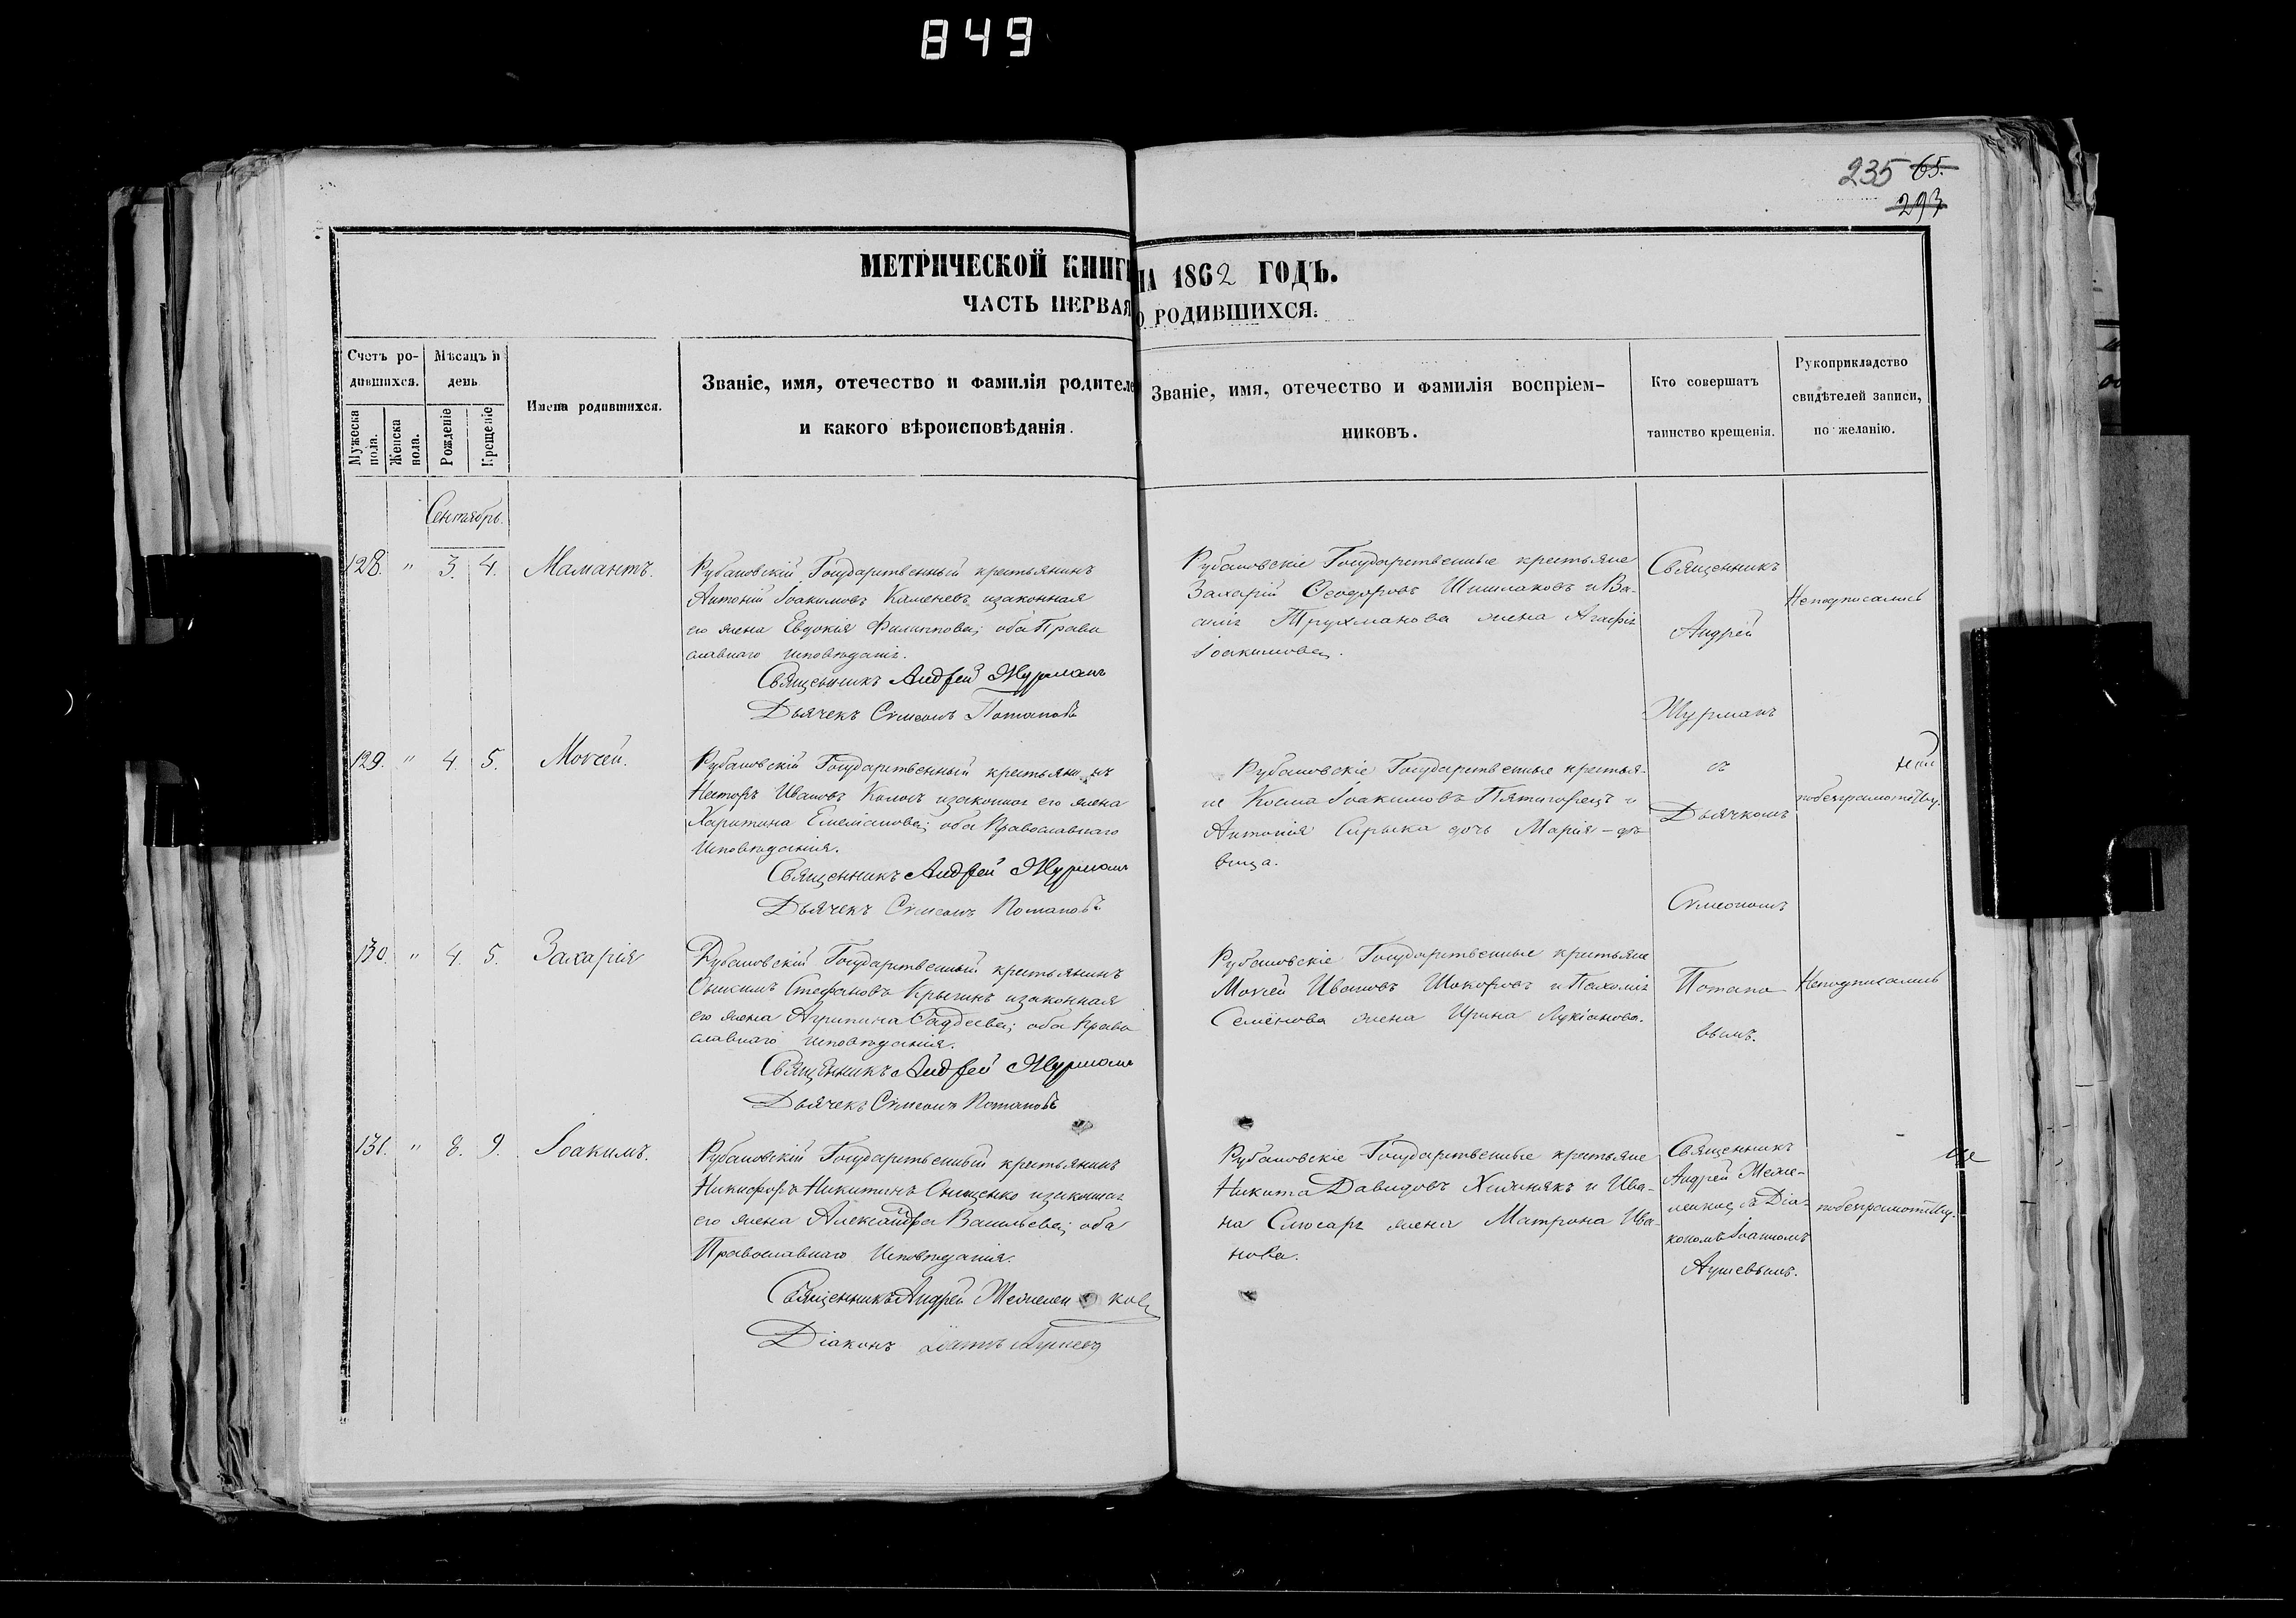 849
235 65.
293
МЕТРИЧЕСКОЙ КНИГИ НА 1862 ГОДЪ.
ЧАСТЬ ПЕРВАЯ О РОДИВШИХСЯ.
Счетъ ро-
дившихся.
Мужеска пола.
Женска пола.
Мѣсяцъ и
день
Рожденіе
Крещеніе
Имена родившихся.
Званіе, имя, отечество и фамилія родителе
и какого вѣроисповѣданія.
Званіе, имя, отечество и фамилія воспріем-
никовъ.
Кто совершатъ
таинство крещенія.
Рукоприкладство
свидѣтелей записи,
по желанію.
Сентябрь.
128. " 3. 4. Мамантъ.
Рубановскій Государственный крестьянинъ
Антоній Іоакимовъ Каменевъ изаконная
его жена Евдокія Филиппова; оба Право
славнаго исповѣданія.
Священникъ Андрей Журманъ
Дьячекъ Симеонъ Потаповъ
Рубановскіе Государственные крестьяне
Захарій Ѳеодоровъ Шишлаковъ и Ва-
силія Трухманова жена Агафія
Іоакимова.
Священникъ
Андрей
Журманъ
съ
Дьячкомъ
Симеономъ
Потапо
вымъ.
Неподписались
129. " 4. 5. Моисей.
Рубановскій Государственный крестьянинъ
Несторъ Ивановъ изаконная его жена
Харитина Емеліанова; оба Православнаго
Исповѣданія.
Священникъ Андрей Журманъ
Дьячекъ Симеонъ Потаповъ
Рубановскіе Государственные крестья-
не Косма Іоакимовъ Пятигорецъ и
Антонія Сирыка дочь Марія - дѣ-
вица.
побезграмотству.
130. " 4. 5. Захарія
Рубановскій Государственный крестьянинъ
Онисимъ Стефановъ Крыгинъ изаконная
его жена Агрипина Фадѣева; оба Право
славнаго исповѣданія.
Священникъ Андрей Журманъ
Дьячекъ Симеонъ Потаповъ
Рубановскіе Государственные крестьяне
Моисей Ивановъ Шокоровъ и Пахомія
Семёнова жена Ирина Лукіанова.
Неподписались
131. " 8. 9. Іоакимъ.
Рубановскій Государственный крестьянинъ
Никифоръ Никитинъ Онищенко изаконная
его жена Александра Васильева; оба
Православнаго Исповѣданія.
Священникъ Андрей
Діаконъ
Рубановскіе Государственные крестьяне
Никита Давидовъ и Ива-
на Слюсаря жена Матрона Ива-
нова.
Священникъ
Андрей
съ Діа-
кономъ Іоанномъ
побезграмотству.